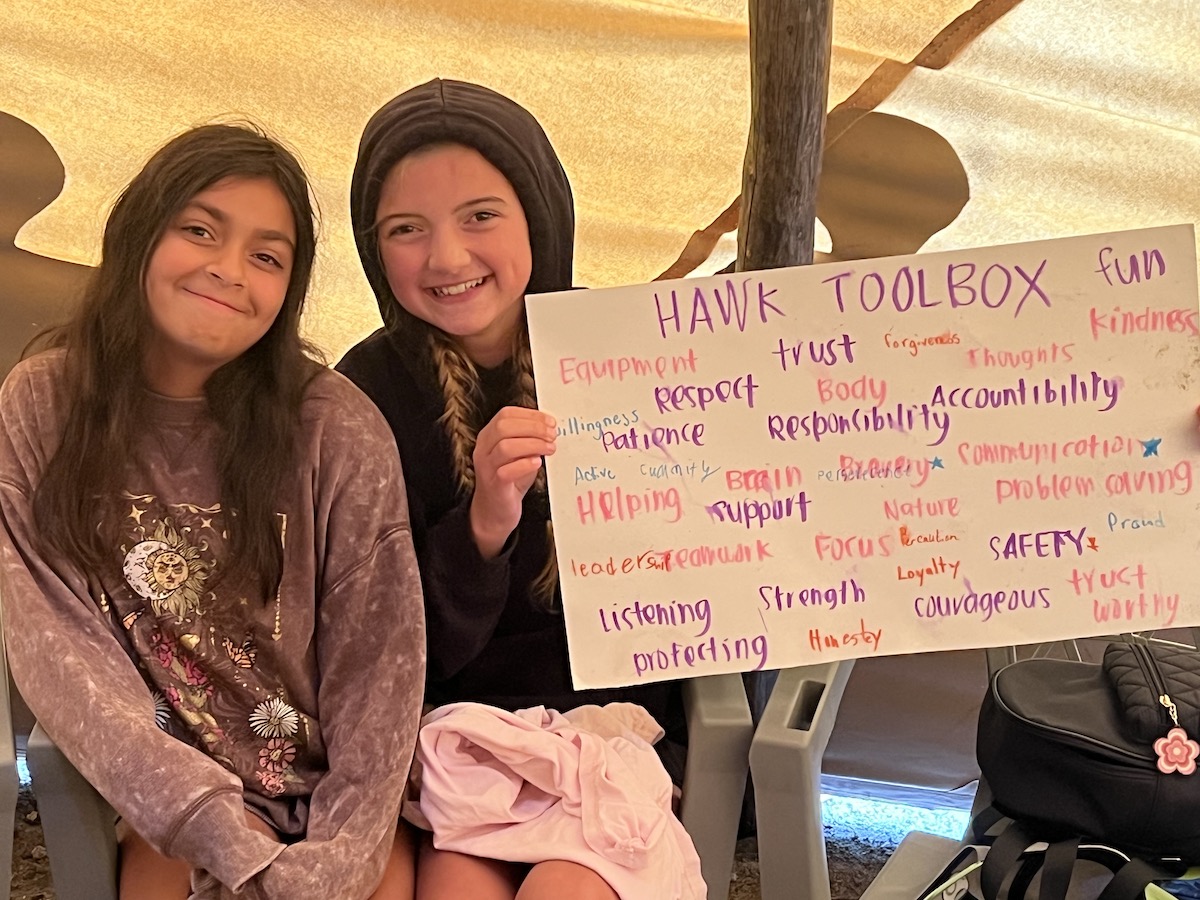 HAWK TOOLBOX fun
Equipment trust forgiveness Thoughts kindness
Respect Body Accountibility
willingness Patience Responsibility
Active Brain Bravery Communication
Helping support Nature problem solving
leadership Teamwork Focus Percaution SAFETY Proud
Loyalty
Listening Strength courageous trust worthy
protecting Honesty